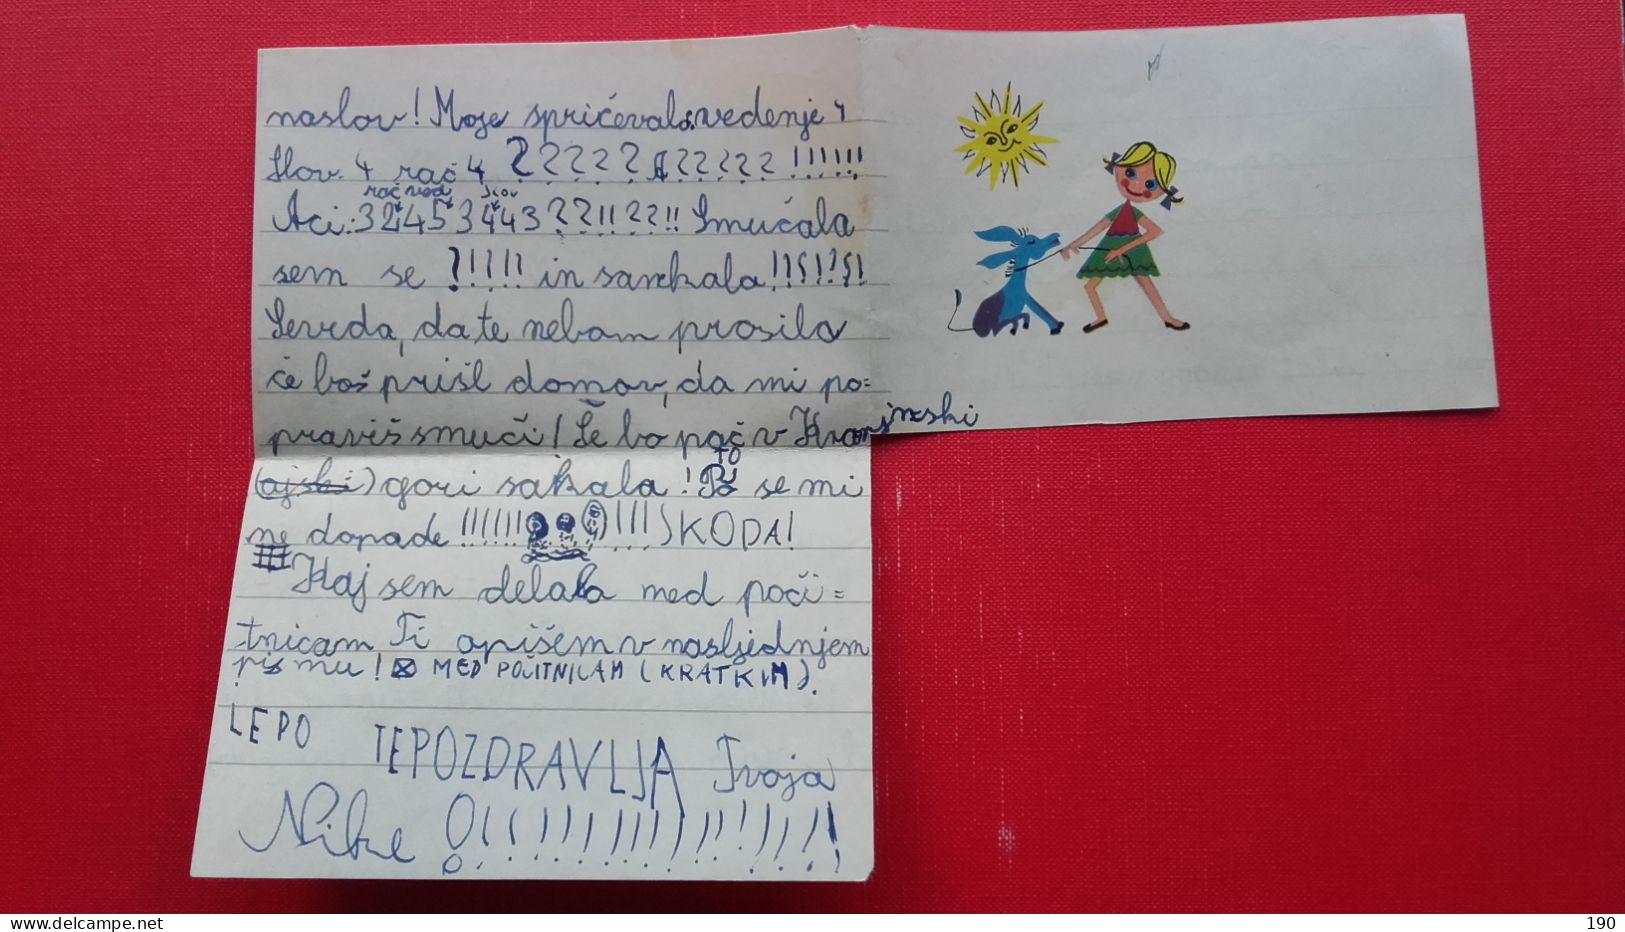 naslov! Moje spričevalo: vedenje 4
Slov. 4 rač 4 ????????????!!!!!!
rač ved slov
Aci: 3245 3443??!!??!! Smučala
sem se ?!!?!! in sankala!!?!?!?!
Seveda, da te nebom prosila
če boš prišl domov, da mi po=
praviš smuči! Še bo pač v Kranjnski
(ajski) gori sakala! To se mi
ne dopade !!!!!! !!! ŠKODA!
Kaj sem delala med poči=
tnicam Ti opišem v nasljednjem
pismu! MED POČITNICAM (KRATKIM).
LEPO TE POZDRAVLJA Tvoja
Nike !!!!!!!!!!!!!!!!!
www.delcampe.net
190